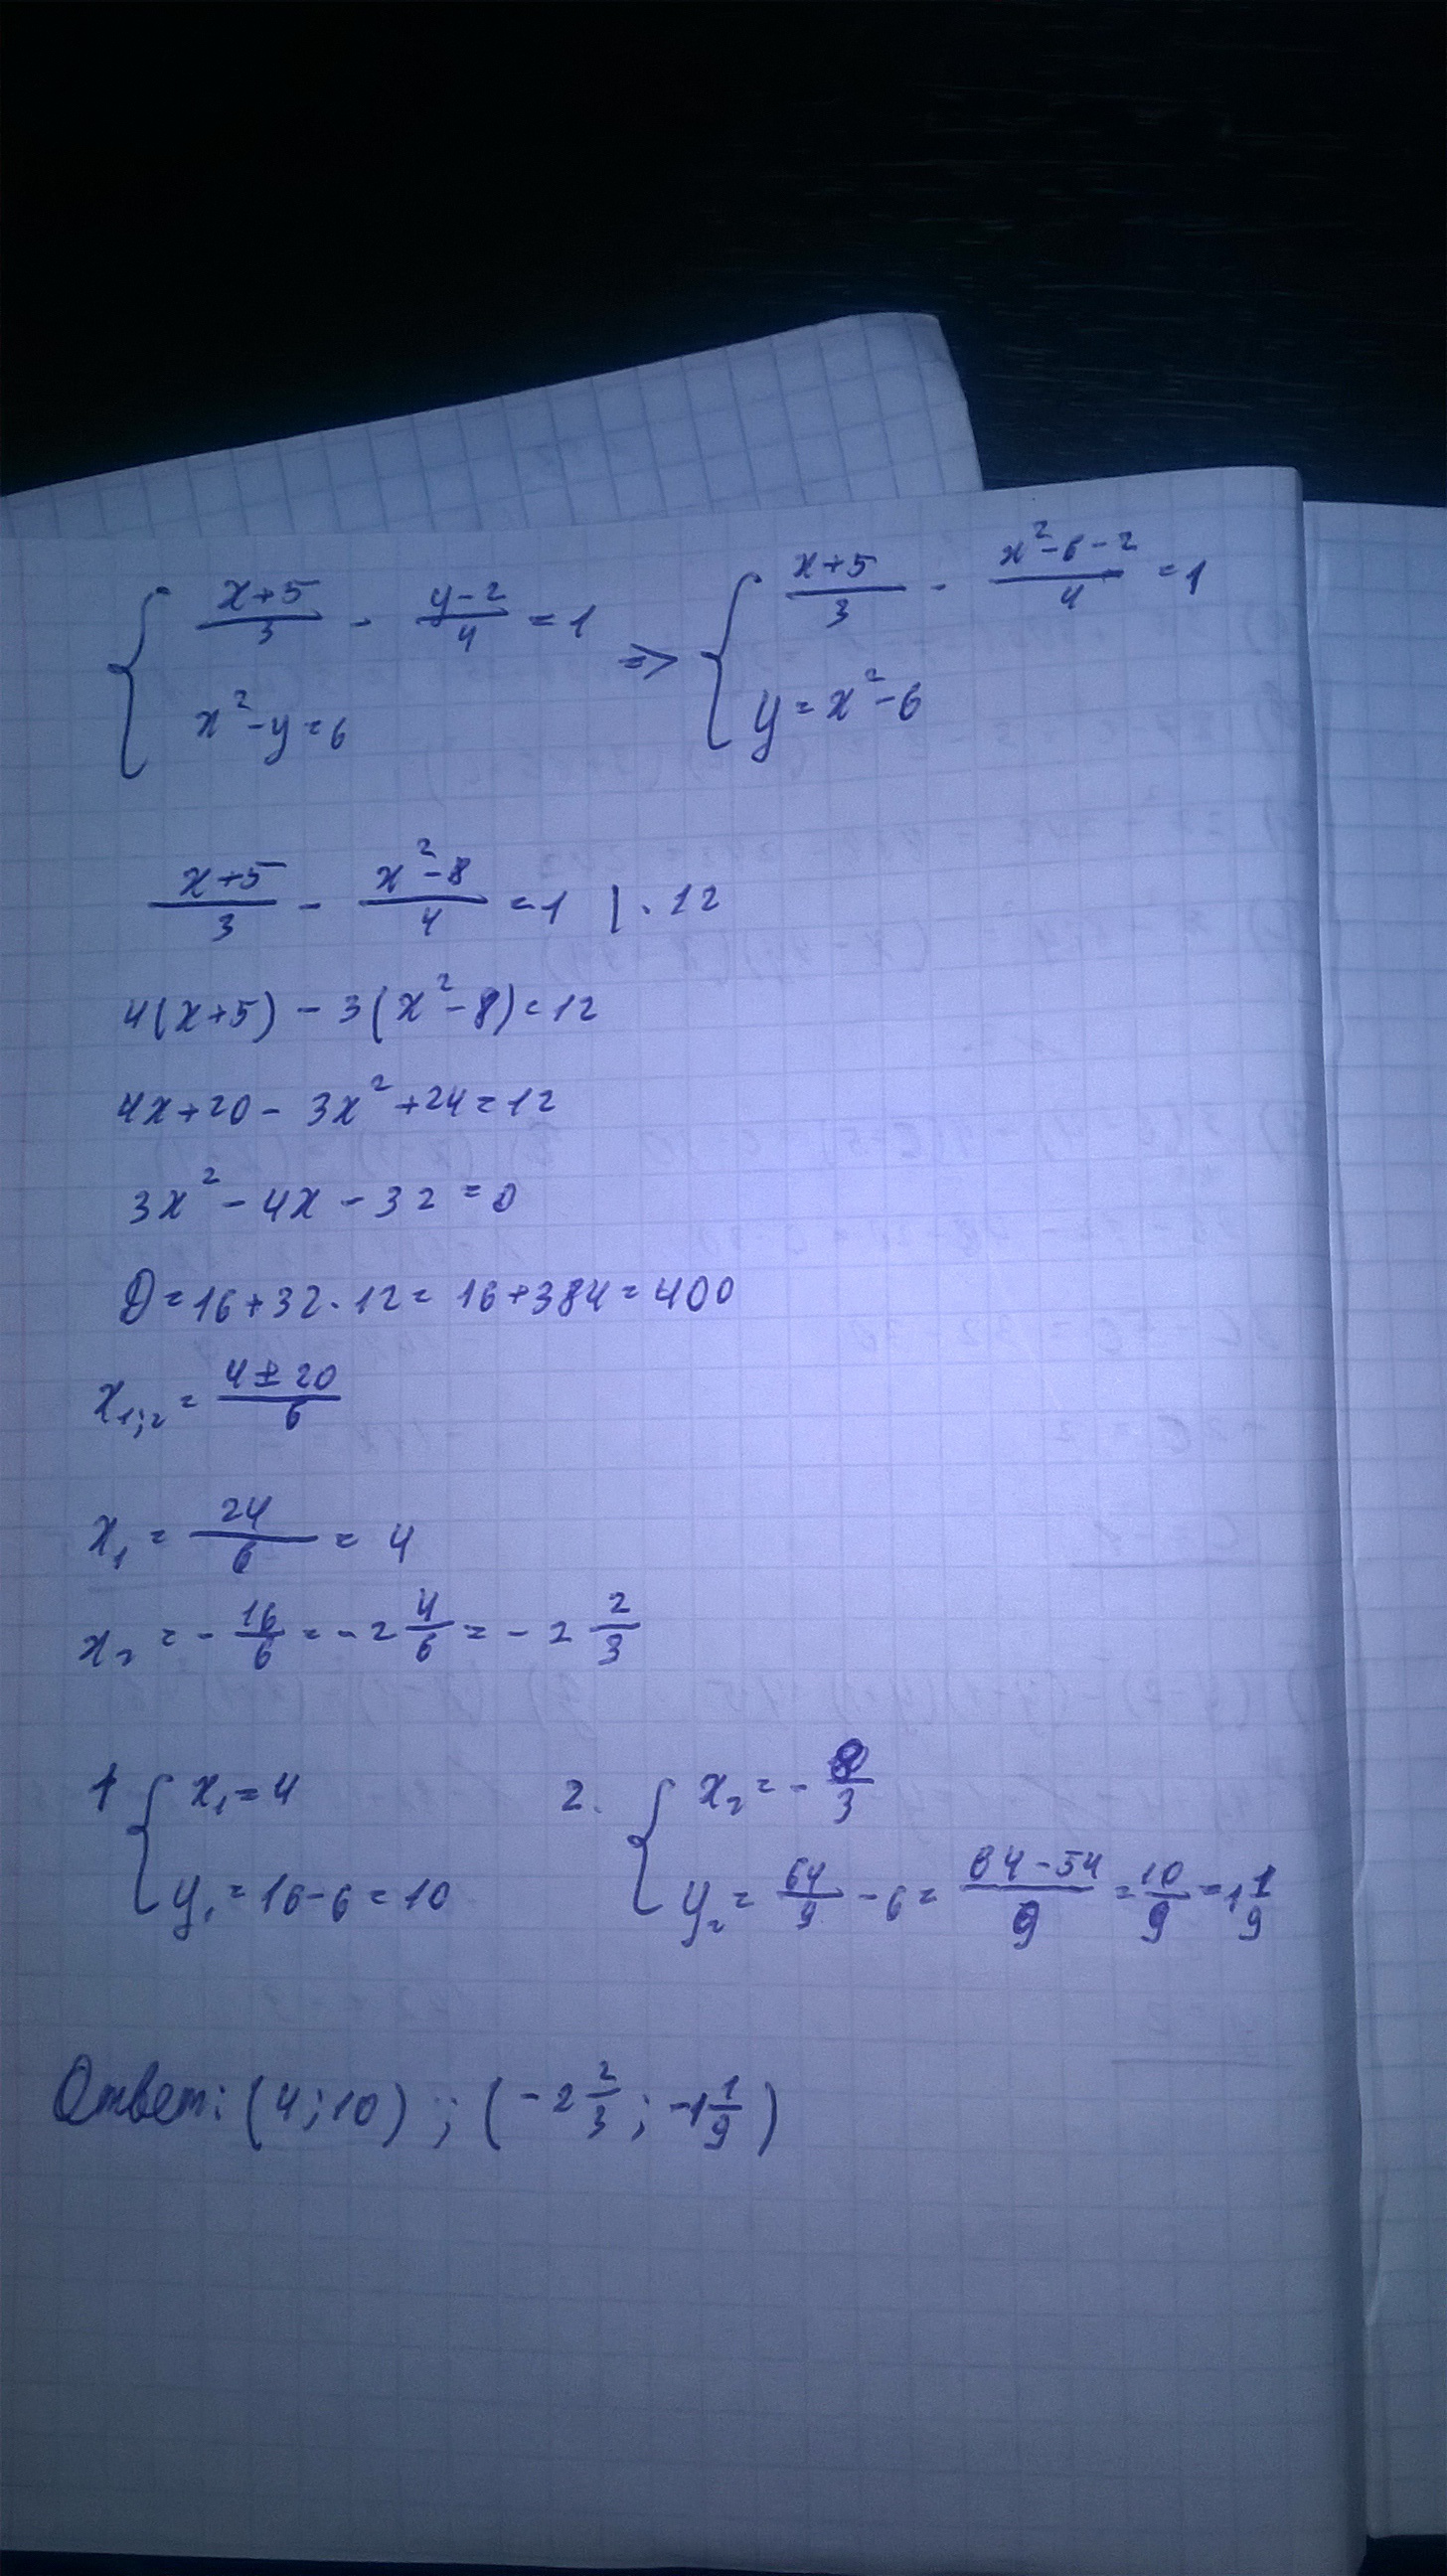 { (x+5)/3 - (y-2)/4 = 1 => { (x+5)/3 - (x²-6-2)/4 = 1
x²-y=6 y=x²-6
(x+5)/3 - (x²-8)/4 = 1 | · 12
4(x+5) - 3(x²-8) = 12
4x+20 - 3x²+24=12
3x² - 4x - 32 = 0
D = 16+32·12 = 16+384 = 400
x₁;₂ = (4±20)/6
x₁ = 24/6 = 4
x₂ = - 16/6 = -2 4/6 = -2 2/3
1 { x₁=4 2. { x₂ = - 8/3
y₁ = 16-6 = 10 y₂ = 64/9 - 6 = (64-54)/9 = 10/9 = 1 1/9
Ответ: (4;10) ; (-2 2/3 ; -1 1/9)